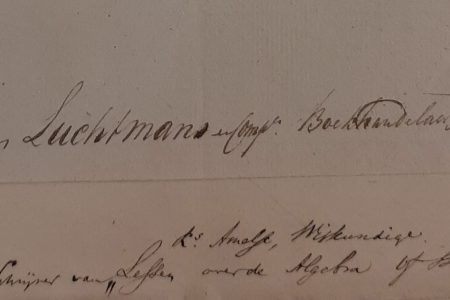 Luchtmans en Comp. Boekhandelaar
Rs Amelse, Wiskundige.
Schrijver van „Lessen over de Algebra of